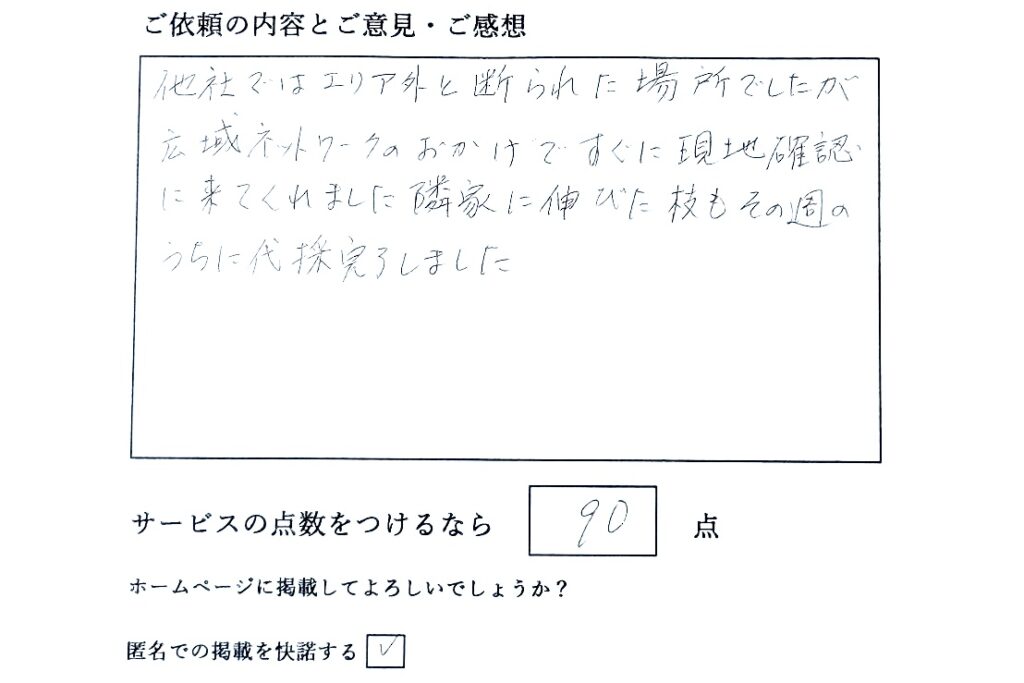 ご依頼の内容とご意見・ご感想
他社ではエリア外と断られた場所でしたが
広域ネットワークのおかげですぐに現地確認
に来てくれました隣家に伸びた枝もその週の
うちに代採完了しました
サービスの点数をつけるなら 90 点
ホームページに掲載してよろしいでしょうか？
匿名での掲載を快諾する ✓